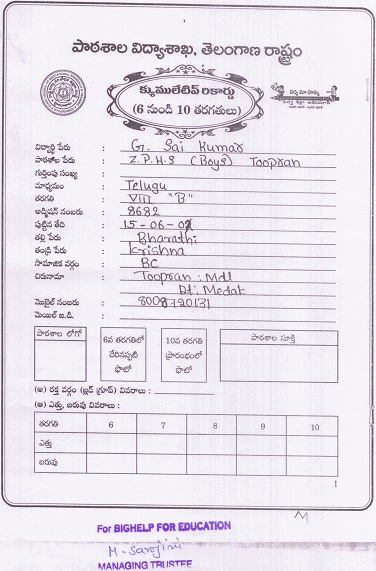 పాఠశాల విద్యాశాఖ, తెలంగాణ రాష్ట్రం
క్యుములేటివ్ రికార్డు
(6 నుండి 10 తరగతులు)
విద్యార్థి పేరు : G. Sai Kumar
పాఠశాల పేరు : Z.P.H.S (Boys) Toopran
గుర్తింపు సంఖ్య :
మాధ్యమం : Telugu
తరగతి : VIII "B"
అడ్మిషన్ నంబరు : 8682
పుట్టిన తేది : 15-06-07
తల్లి పేరు : Bharathi
తండ్రి పేరు : Krishna
సామాజిక వర్గం : BC
చిరునామా : Toopran : Mdl
Dt: Medak
మొబైల్ నంబరు : 8008720131
మెయిల్ ఐ.డి. :
పాఠశాల లోగో
6వ తరగతిలో చేరినప్పటి ఫొటో
10వ తరగతి ప్రారంభంలో ఫొటో
పాఠశాల సూక్తి
(అ) రక్త వర్గం (బ్లడ్ గ్రూప్) వివరాలు :
(ఆ) ఎత్తు, బరువు వివరాలు :
తరగతి 6 7 8 9 10
ఎత్తు
బరువు
1
For BIGHELP FOR EDUCATION
M. Sarojini
MANAGING TRUSTEE